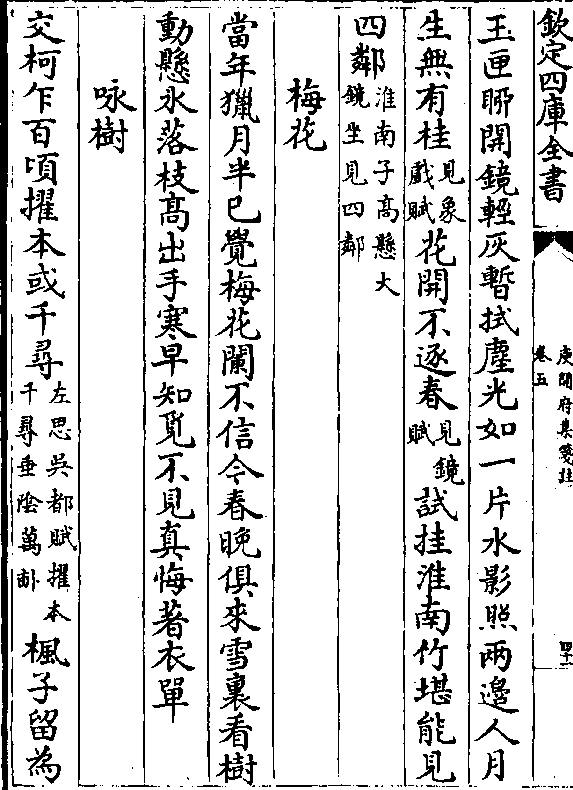 欽定四庫全書
庾開府集箋註
卷五
四十一
玉匣聊開鏡輕灰暫拭塵光如一片水影照兩邊人月
生無有桂見象戲賦花開不逐春見鏡賦試挂淮南竹堪能見
四鄰淮南子高懸大鏡坐見四鄰
梅花
當年獵月半已覺梅花闌不信今春晚俱來雪裏看樹
動懸氷落枝高出手寒早知覓不見真悔著衣單
咏樹
交柯乍百頃擢本或千尋左思吳都賦擢本千尋垂隂萬畝楓子留為